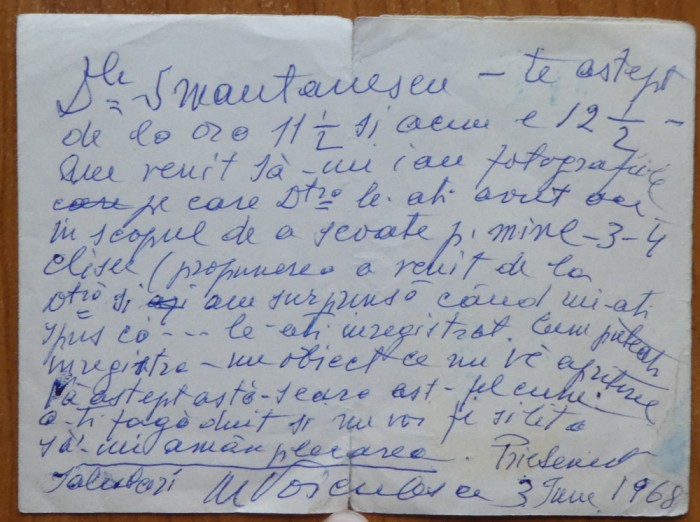 Dle Smantanescu – te astept
de la ora 11 1/2 si acum e 12 1/2 –
Am venit să-mi iau fotografiile
care pe care Dtră le-ati avut
in scopul de a scoate p. mine – 3-4
clisee (propunerea a venit de la
Dtră si am surprinsă când mi-ati
spus că ---- le-ati inregistrat. Cum puteati
inregistra – un obiect ce nu vă apartine
Vă astept astă-seara ast-fel cum
a-ti făgăduit si nu voi fi silita
să-mi amân plecarea.
Salutari M Voiculescu 3 June 1968